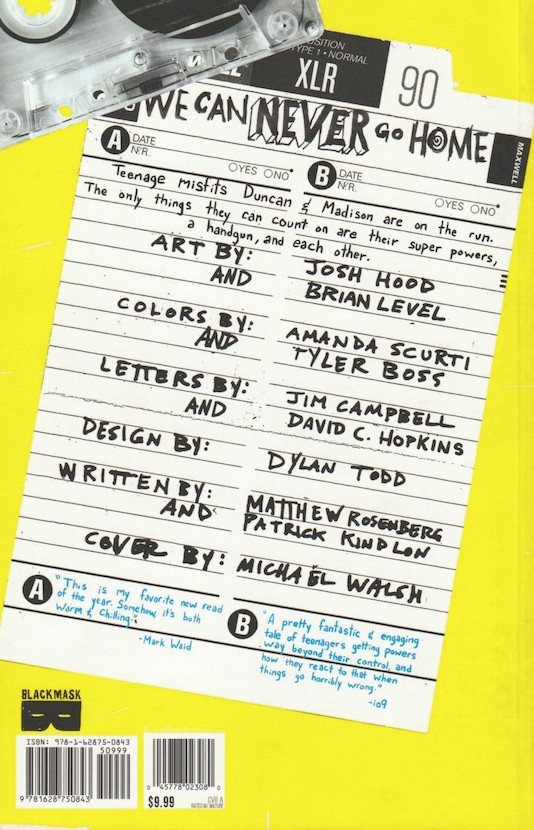 POSITION
TYPE 1 • NORMAL
XLR
90
WE CAN NEVER GO HOME
MAXWELL
A DATE
N.R. OYES ONO
B DATE
N.R. OYES ONO
Teenage misfits Duncan & Madison are on the run.
The only things they can count on are their super powers,
a handgun, and each other.
ART BY: JOSH HOOD
AND BRIAN LEVEL
COLORS BY: AMANDA SCURTI
AND TYLER BOSS
LETTERS BY: JIM CAMPBELL
AND DAVID C. HOPKINS
DESIGN BY: DYLAN TODD
WRITTEN BY: MATTHEW ROSENBERG
AND PATRICK KINDLON
COVER BY: MICHAEL WALSH
A
"This is my favorite new read
of the year. Somehow, it's both
warm & chilling."
-Mark Waid
B
"A pretty fantastic & engaging
tale of teenagers getting powers
way beyond their control, and
how they react to that when
things go horribly wrong."
-io9
BLACKMASK
ISBN: 978-1-62875-0843
50999
9 781628 750843
0 45778 02308 0
$9.99
CVR A
RATED M/ MATURE